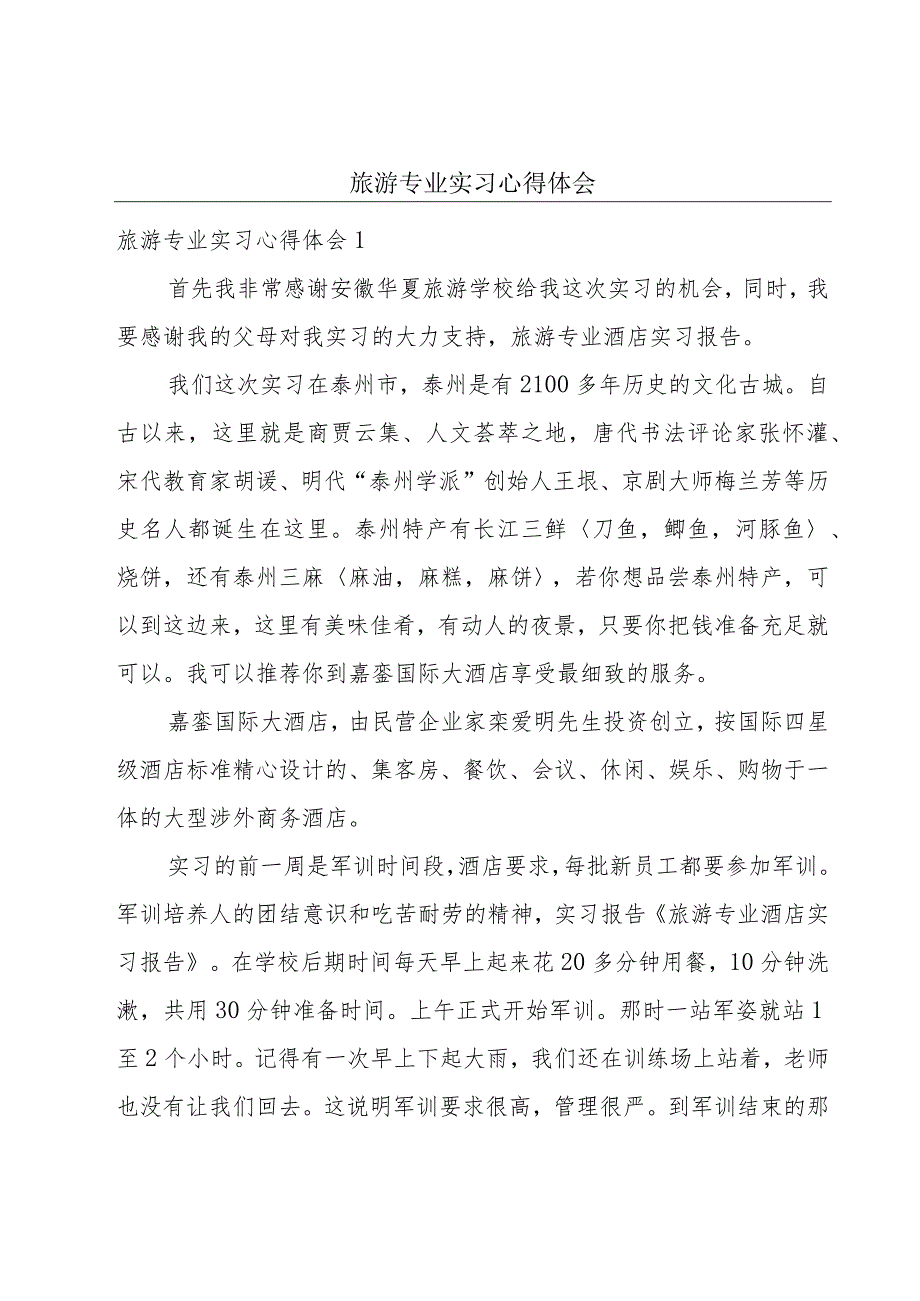 旅游专业实习心得体会
旅游专业实习心得体会1
首先我非常感谢安徽华夏旅游学校给我这次实习的机会，同时，我
要感谢我的父母对我实习的大力支持，旅游专业酒店实习报告。
我们这次实习在泰州市，泰州是有2100多年历史的文化古城。自
古以来，这里就是商贾云集、人文荟萃之地，唐代书法评论家张怀灌、
宋代教育家胡谖、明代“泰州学派”创始人王垠、京剧大师梅兰芳等历
史名人都诞生在这里。泰州特产有长江三鲜〈刀鱼，鲫鱼，河豚鱼〉、
烧饼，还有泰州三麻〈麻油，麻糕，麻饼〉，若你想品尝泰州特产，可
以到这边来，这里有美味佳肴，有动人的夜景，只要你把钱准备充足就
可以。我可以推荐你到嘉銮国际大酒店享受最细致的服务。
嘉銮国际大酒店，由民营企业家栾爱明先生投资创立，按国际四星
级酒店标准精心设计的、集客房、餐饮、会议、休闲、娱乐、购物于一
体的大型涉外商务酒店。
实习的前一周是军训时间段，酒店要求，每批新员工都要参加军训。
军训培养人的团结意识和吃苦耐劳的精神，实习报告《旅游专业酒店实
习报告》。在学校后期时间每天早上起来花20多分钟用餐，10分钟洗
漱，共用30分钟准备时间。上午正式开始军训。那时一站军姿就站1
至2个小时。记得有一次早上下起大雨，我们还在训练场上站着，老师
也没有让我们回去。这说明军训要求很高，管理很严。到军训结束的那